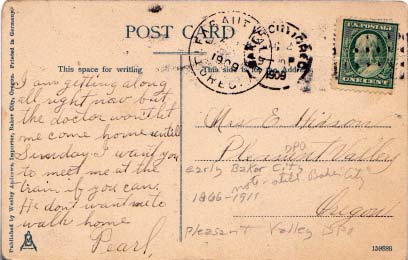 Published by Wesley Andrews, Importer, Baker City, Oregon. Printed in Germany.
POST CARD
This space for writing
This side is for the Address
I am getting along
all right now but
the doctor won't let
me come home untill
Sunday. I want you
to meet me at the
train if you can.
He dont want me to
walk home
Pearl,
1909
OREG.
1909
U.S. POSTAGE
ONE CENT
Mrs E Hisson
Pleasant Valley
DPO
early Baker City
note - still Baker City
1866-1911
Oregon
Pleasant Valley DPO